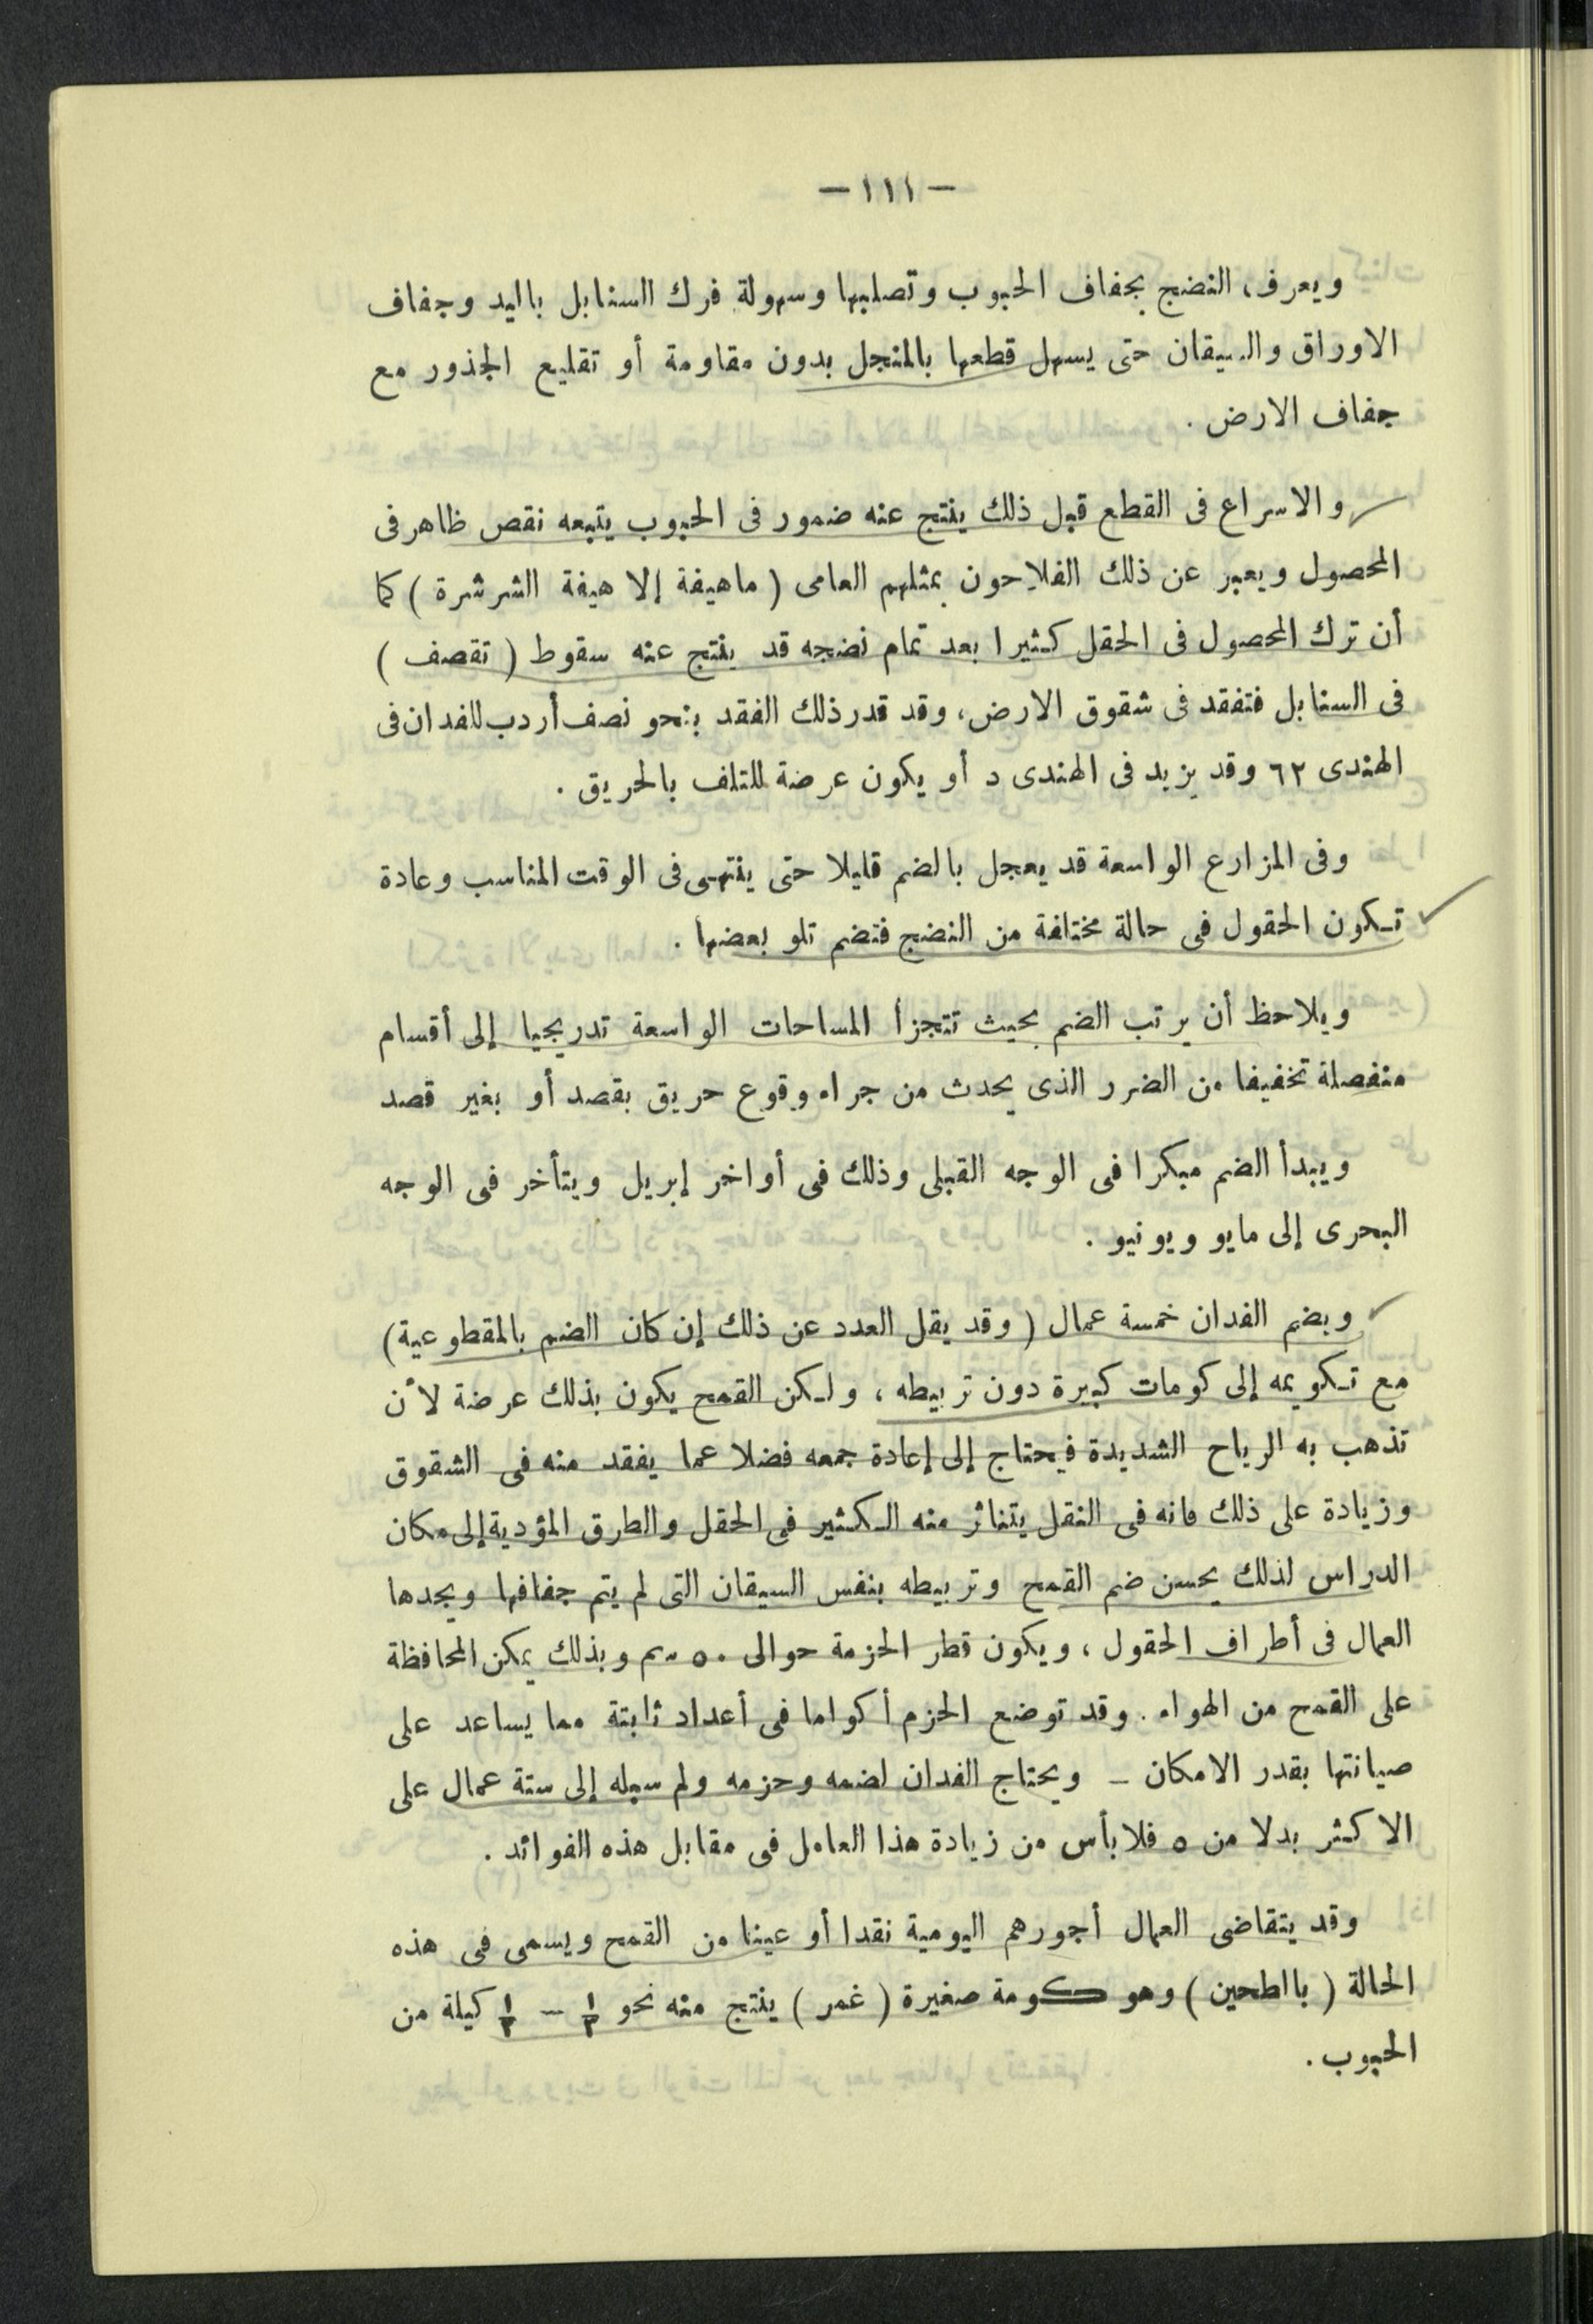 — ١١١ —
ويعرف، النضج بجفاف الحبوب وتصلبها وسهولة فرك السنابل باليد وجفاف
الاوراق والسيقان حتى يسهل قطعها بالمنجل بدون مقاومة أو تقليع الجذور مع
جفاف الارض .
والاسراع فى القطع قبل ذلك ينتج عنه ضمور فى الحبوب يتبعه نقص ظاهر فى
المحصول ويعبر عن ذلك الفلاحون بمثلهم العامى ( ماهيفة إلا هيفة الشرشرة ) كما
أن ترك المحصول فى الحقل كثيرا بعد تمام نضجه قد ينتج عنه سقوط ( تقصف )
فى السنابل فتفقد فى شقوق الارض، وقد قدر ذلك الفقد بنحو نصف أردب للفدان فى
الهندى ٦٢ وقد يزيد فى الهندى د أو يكون عرضة للتلف بالحريق .
وفى المزارع الواسعة قد يعجل بالضم قليلا حتى ينتهى فى الوقت المناسب وعادة
تكون الحقول فى حالة مختلفة من النضج فتضم تلو بعضها .
ويلاحظ أن يرتب الضم بحيث تتجزأ المساحات الواسعة تدريجيا إلى أقسام
منفصلة تخفيفا من الضرر الذى يحدث من جراء وقوع حريق بقصد أو بغير قصد
ويبدأ الضم مبكرا فى الوجه القبلى وذلك فى أواخر إبريل ويتأخر فى الوجه
البحرى إلى مايو ويونيو .
ويضم الفدان خمسة عمال ( وقد يقل العدد عن ذلك إن كان الضم بالمقطوعية )
مع تكويمه إلى كومات كبيرة دون تربيطه ، ولكن القمح يكون بذلك عرضة لأن
تذهب به الرياح الشديدة فيحتاج إلى إعادة جمعه فضلا عما يفقد منه فى الشقوق
وزيادة على ذلك فانه فى النقل يتناثر منه الكثير فى الحقل والطرق المؤدية إلى مكان
الدراس لذلك يحسن ضم القمح وتربيطه بنفس السيقان التى لم يتم جفافها ويجدها
العمال فى أطراف الحقول ، ويكون قطر الحزمة حوالى ٥٠ سم وبذلك يمكن المحافظة
على القمح من الهواء . وقد توضع الحزم أكواما فى أعداد ثابتة مما يساعد على
صيانتها بقدر الامكان – ويحتاج الفدان لضمه وحزمه ولم سبله إلى ستة عمال على
الاكثر بدلا من ٥ فلا بأس من زيادة هذا العامل فى مقابل هذه الفوائد .
وقد يتقاضى العمال أجورهم اليومية نقدا أو عينا من القمح ويسمى فى هذه
الحالة ( بالطحين ) وهو كومة صغيرة ( غمر ) ينتج منه نحو كيلة من
الحبوب .